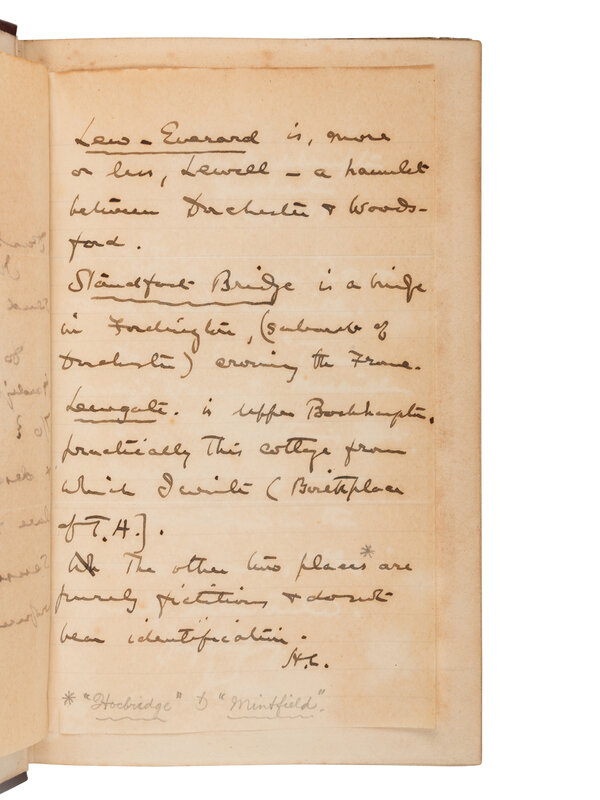 Lew-Everard is, more
or less, Lewell – a hamlet
between Dorchester & Woods-
ford.
Standfast Bridge is a bridge
in Fordington, (suburb of
Dorchester) crossing the Frome.
Lewgate. is upper Bockhampton,
practically this cottage from
which I write (Birthplace
of T.H.].
The other two places* are
purely fictitious & do not
bear identification.
H.L.
* "Hocbridge" & "Mintfield".